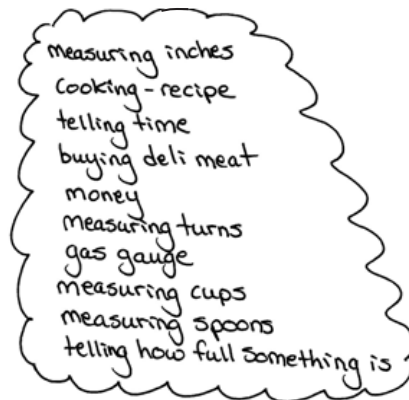 measuring inches
cooking - recipe
telling time
buying deli meat
money
measuring turns
gas gauge
measuring cups
measuring spoons
telling how full something is